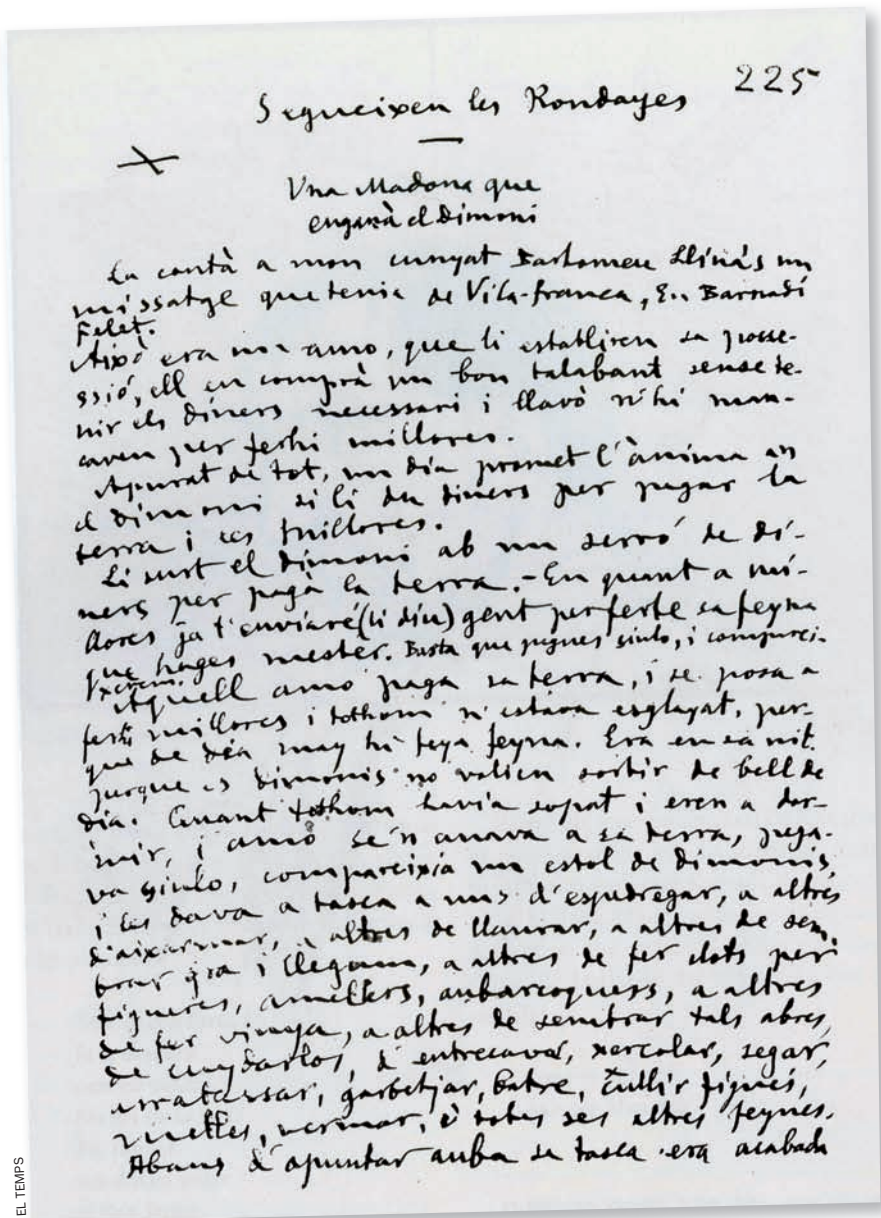 225
Segueixen les Rondayes
Una Madona que
engañà el dimoni
La contà a mon cunyat Bartomeu Llinás un
missatge que tenia de Vila-franca, En Barnadí
Felet.
Això era un amo, que li establiren sa posse-
ssió, ell en comprà un bon talabant sense te-
nir els diners necessari i llavò n'hi man-
caven per ferhi millores.
Apurat de tot, un dia promet l'ànima an
el dimoni si li du diners per pagar la
terra i les millores.
Li surt el dimoni ab un serró de di-
ners per pagà la terra. - En quant a mi-
llores ja t'enviaré (li diu) gent per ferte sa feyna
que hages mester. Basta que pegues siulo, i compárei-
xerem.
Aquell amo paga sa terra, i se posa a
ferhi millores i tothom n'estava esglayat, per-
que de dia may hi feya feyna. Era en sa nit
perque es dimonis no volien sortir de bell de
dia. Quant tothom havia sopat i eren a dor-
mir, l'amo se'n anava a sa terra, pega-
va siulo, compareixia un estol de dimonis,
i les dava a tasca a uns d'espedregar, a altres
d'aixarmar, a altres de llaurar, a altres de sem-
brar gra i llegum, a altres de fer clots per
figueres, amellers, aubarcoquers, a altres
de fer vinya, a altres de sembrar tals abres,
de cuydarlos, d'entrecavar, xercolar, segar,
garbetjar, batre, cullir figues,
metles, vermar, i totes ses altres feynes.
Abans d'apuntar auba sa tasca era acabada
EL TEMPS